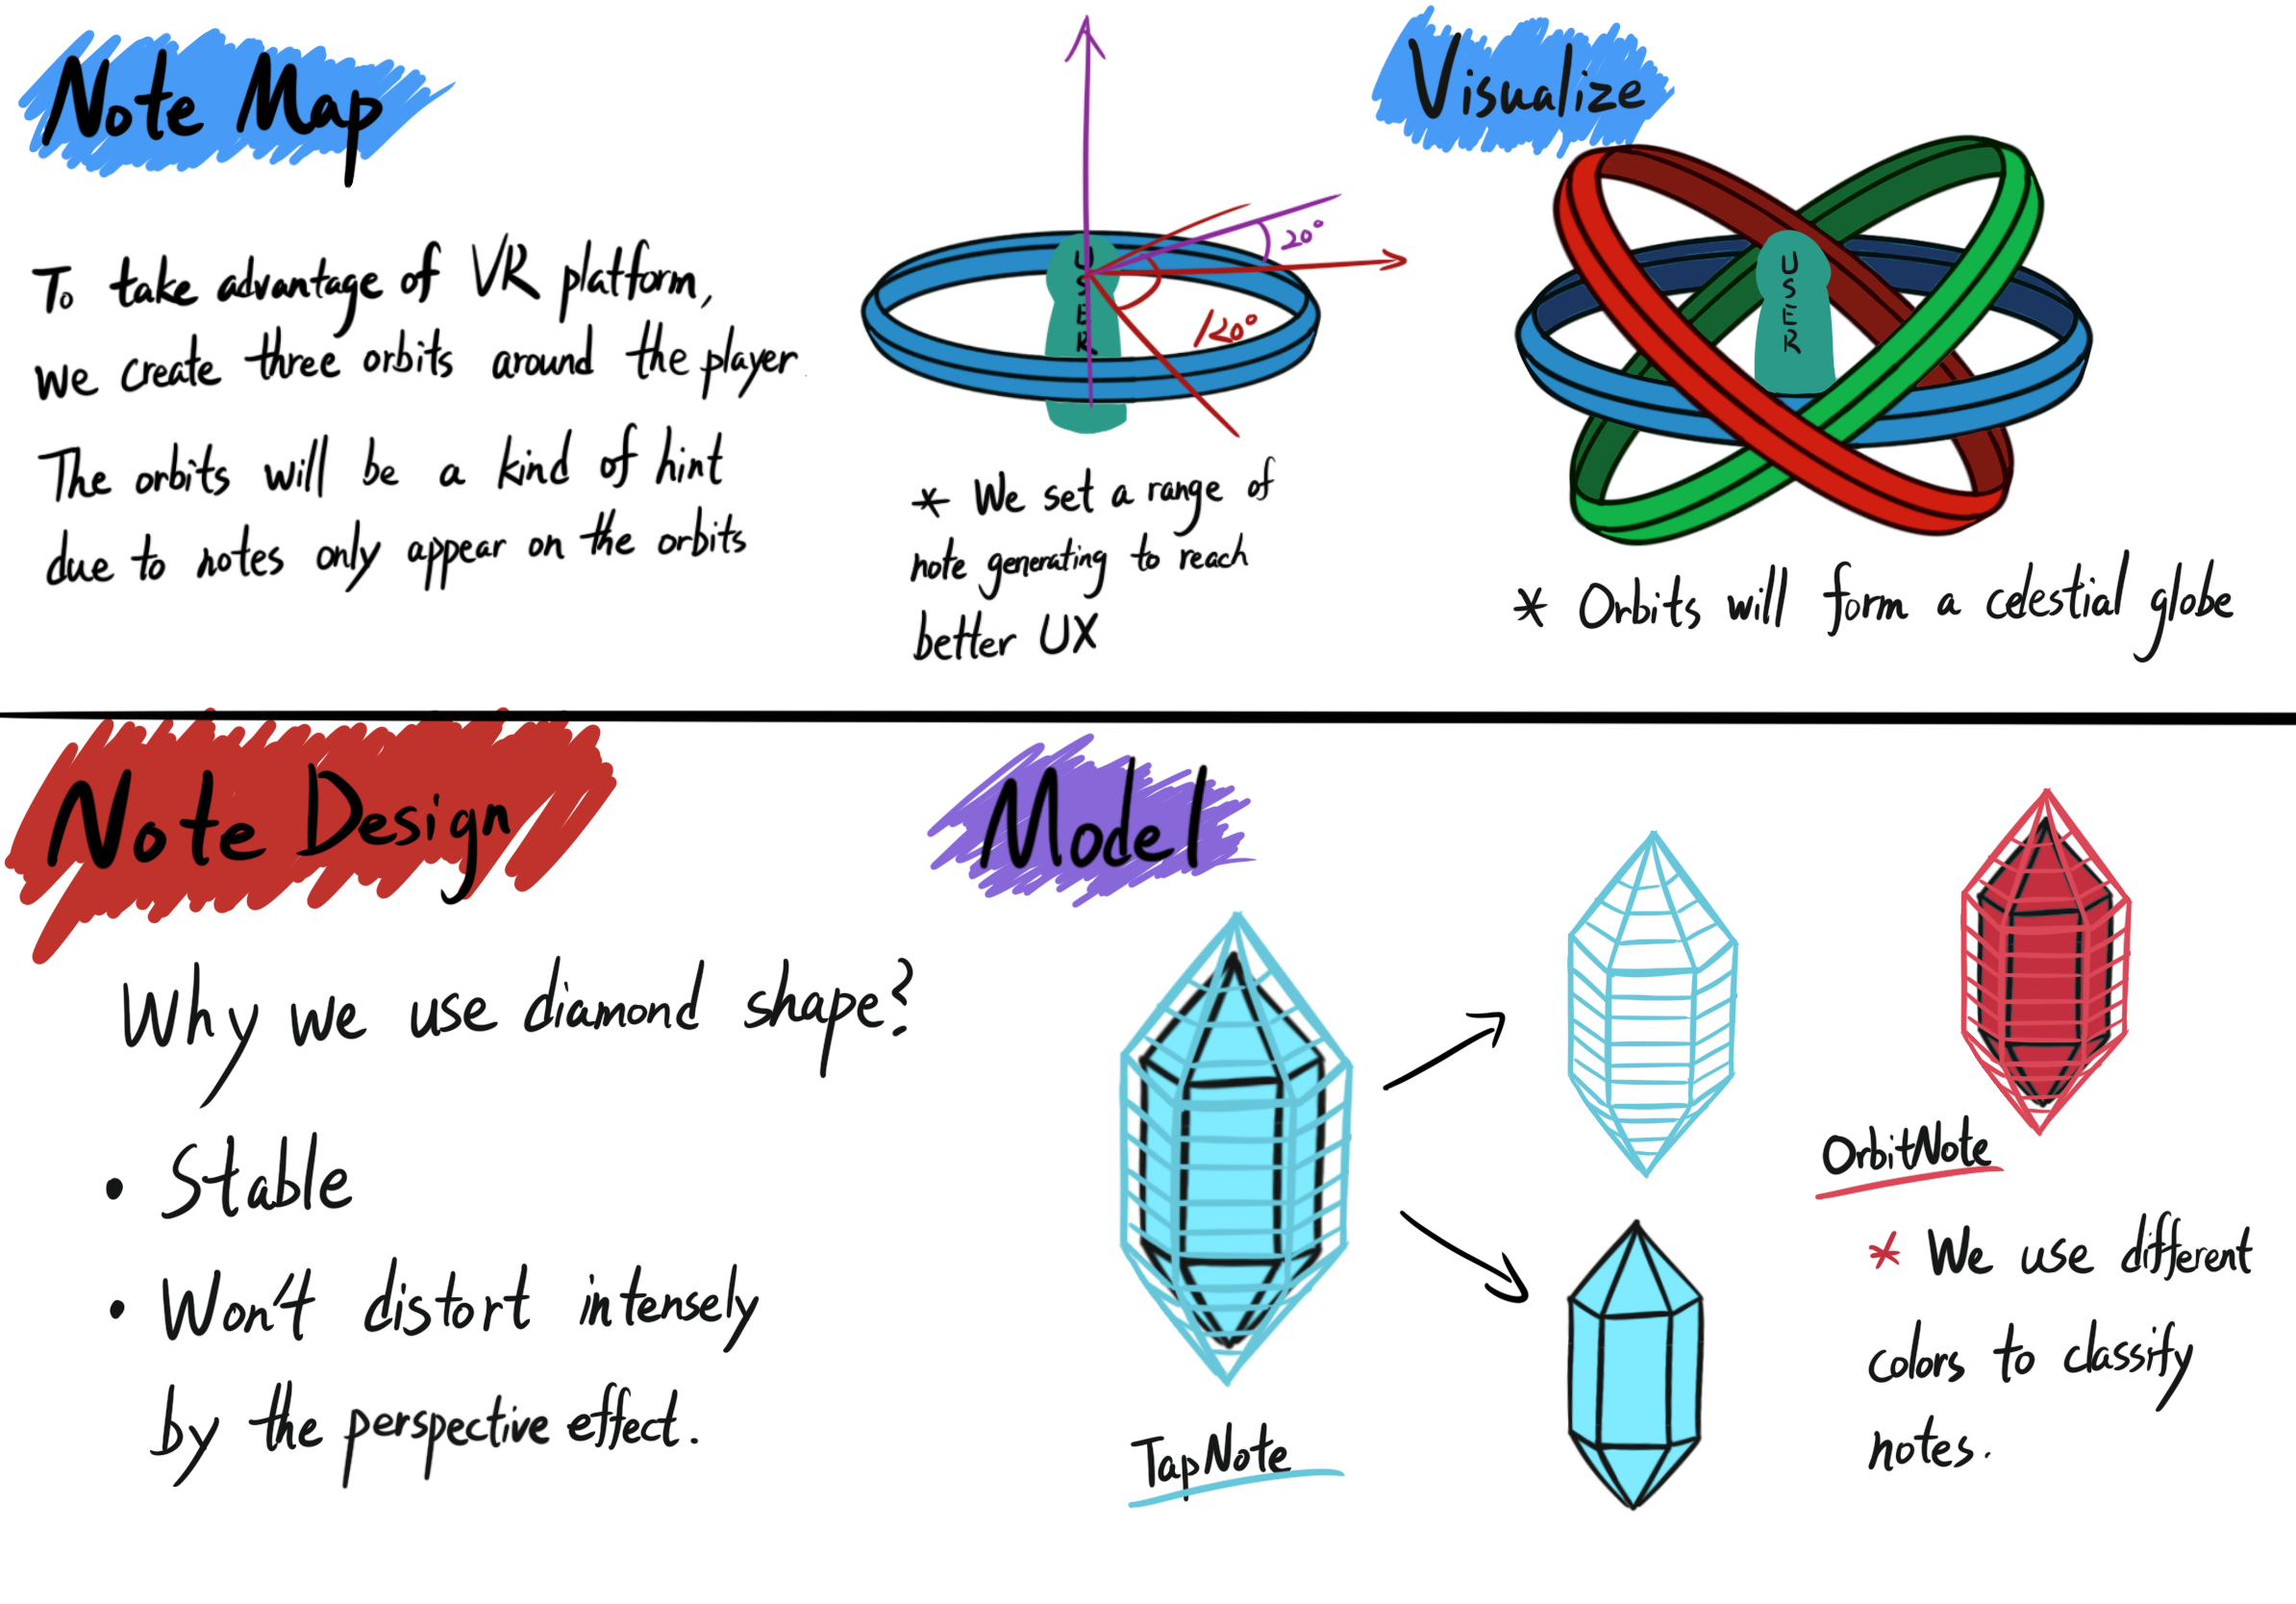 Note Map
To take advantage of VR platform,
we create three orbits around the player.
The orbits will be a kind of hint
due to notes only appear on the orbits
USER
20°
120°
* We set a range of
note generating to reach
better UX
Visualize
USER
* Orbits will form a celestial globe
Note Design
Why we use diamond shape?
• Stable
• Won't distort intensely
by the perspective effect.
Model
TapNote
OrbitNote
* We use different
colors to classify
notes.